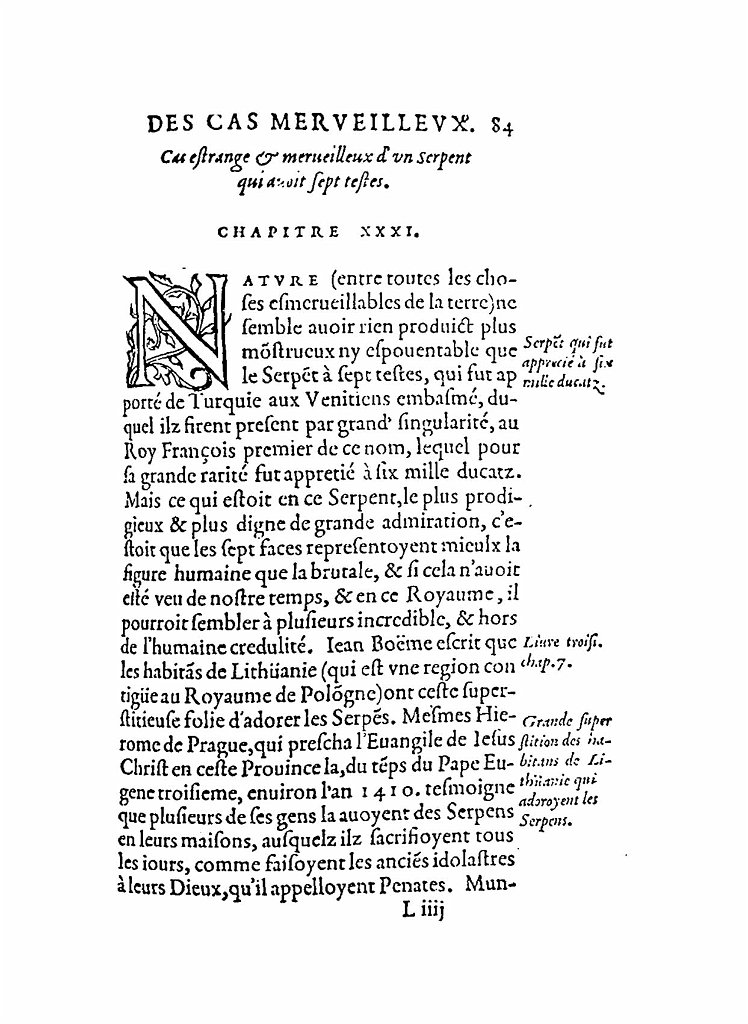 DES CAS MERVEILLEVX. 84
Cas eſtrange & merueilleux d'vn Serpent
qui auoit ſept teſtes.
CHAPITRE XXXI.
NATVRE (entre toutes les cho-
ſes eſmerueillables de la terre)ne
ſemble auoir rien produict plus
mõſtrueux ny eſpouentable que
le Serpẽt à ſept teſtes, qui fut ap
porté de Turquie aux Venitiens embaſmé, du-
quel ilz firent preſent par grand' ſingularité, au
Roy François premier de ce nom, lequel pour
ſa grande rarité fut appretié à ſix mille ducatz.
Mais ce qui eſtoit en ce Serpent,le plus prodi-
gieux & plus digne de grande admiration, c'e-
ſtoit que les ſept faces repreſentoyent mieulx la
figure humaine que la brutale, & ſi cela n'auoit
eſté veu de noſtre temps, & en ce Royaume, il
pourroit ſembler à pluſieurs incredible, & hors
de l'humaine credulité. Iean Boëme eſcrit que
les habitãs de Lithüanie (qui eſt vne region con
tigüe au Royaume de Polõgne)ont ceſte ſuper-
ſtitieuſe folie d'adorer les Serpẽs. Meſmes Hie-
rome de Prague,qui preſcha l'Euangile de Ieſus
Chriſt en ceſte Prouince la,du tẽps du Pape Eu-
gene troiſieme, enuiron l'an 1410. teſmoigne
que pluſieurs de ſes gens la auoyent des Serpens
en leurs maiſons, auſquelz ilz ſacrifioyent tous
les iours, comme faiſoyent les anciẽs idolaſtres
à leurs Dieux,qu'il appelloyent Penates. Mun-
L iiij
Serpẽt qui fut
apprecié à ſix
mille ducatz.
Liure troiſi.
chap.7.
Grande ſuper
ſtition des ha-
bitans de Li-
thüanie qui
adoroyent les
Serpens.